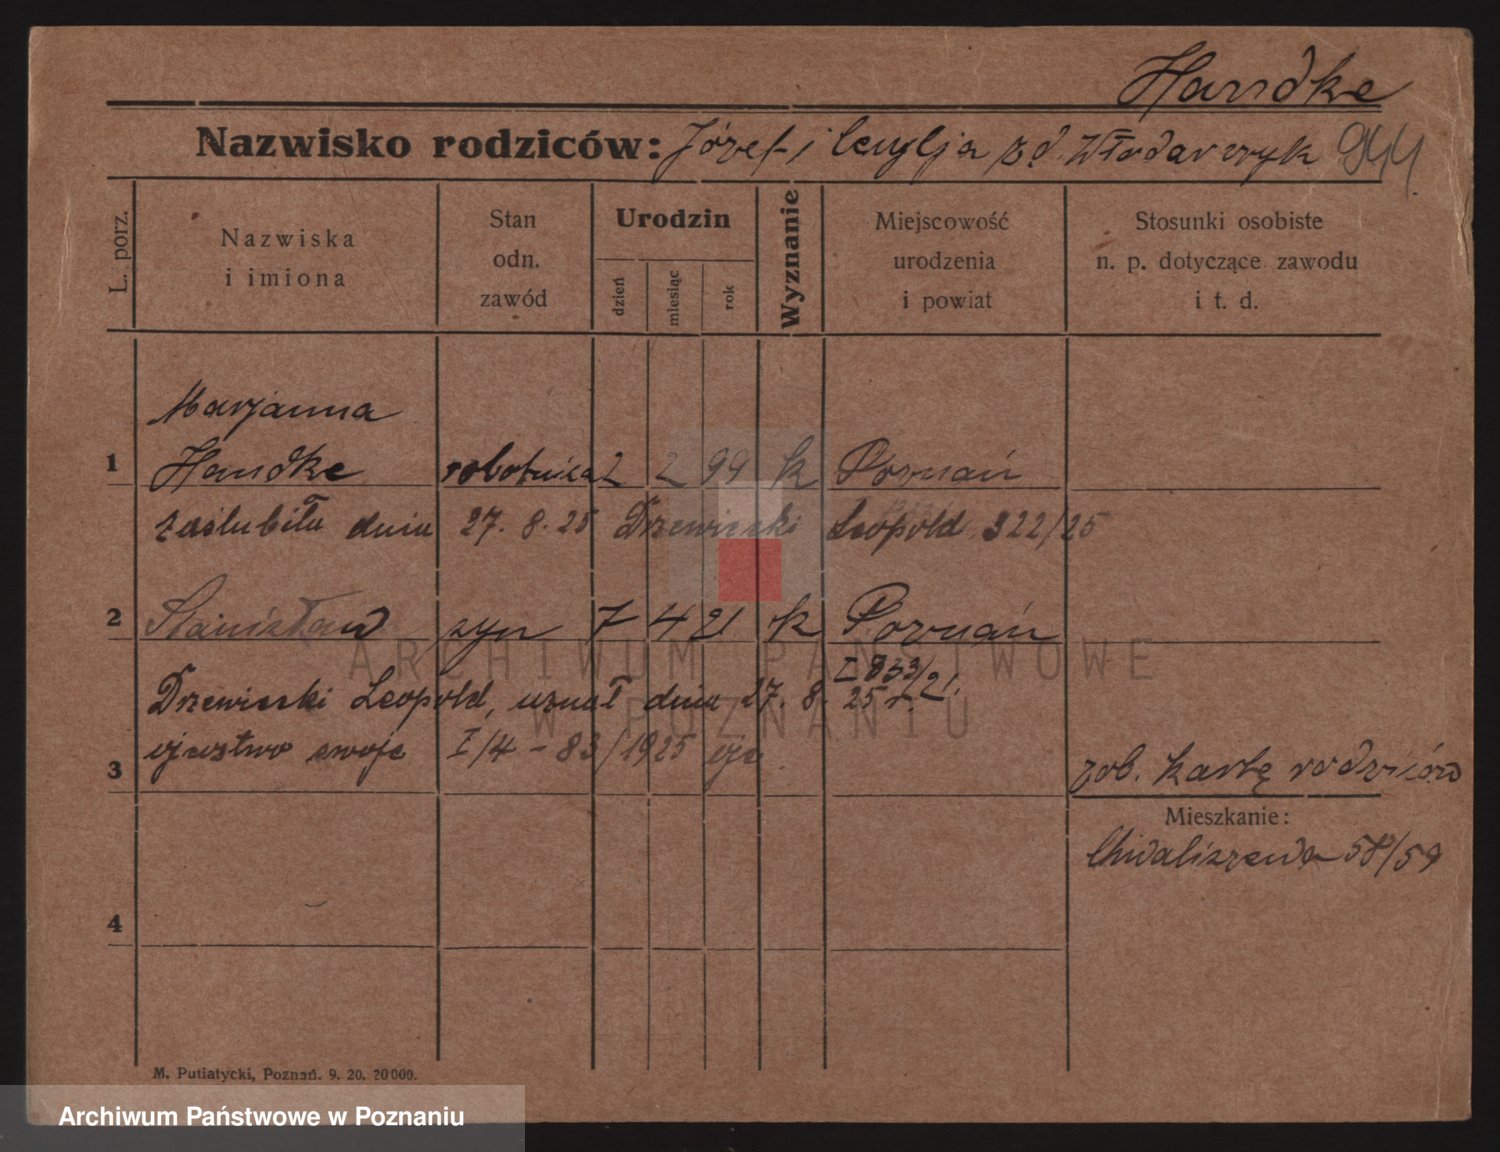 Handke
Nazwisko rodziców: Józef i Cecylja z d. Włodarczyk 944
L. porz.
Nazwiska
i imiona
Stan
odn.
zawód
Urodzin
dzień
miesiąc
rok
Wyznanie
Miejscowość
urodzenia
i powiat
Stosunki osobiste
n. p. dotyczące zawodu
i t. d.
Marjanna
1 Handke robotnica 2 2 99 k Poznań
zaślubiła dnia 27. 8. 25 Drzewiecki Leopold 322/25
2 Stanisław syn 7 4 21 k Poznań
I 833/21.
Drzewiecki Leopold, uznał dnia 27. 8. 25 r.
ojcostwo swoje I/4 - 83/1925
3 zob. kartę rodziców
Mieszkanie:
Chwaliszewo 58/59
4
M. Putiatycki, Poznań. 9. 20. 20000.
ARCHIWUM PAŃSTWOWE
W POZNANIU
Archiwum Państwowe w Poznaniu